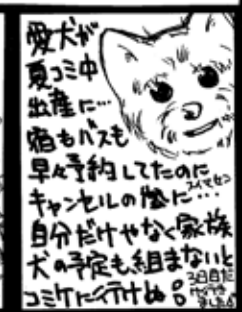 愛犬が
夏コミ中
出産に…
宿もバスも
早々予約してたのに
キャンセルの嵐に…
スイマセン
自分だけやなく家族
犬の予定も組まないと
コミケに行けぬ。
3日目だ